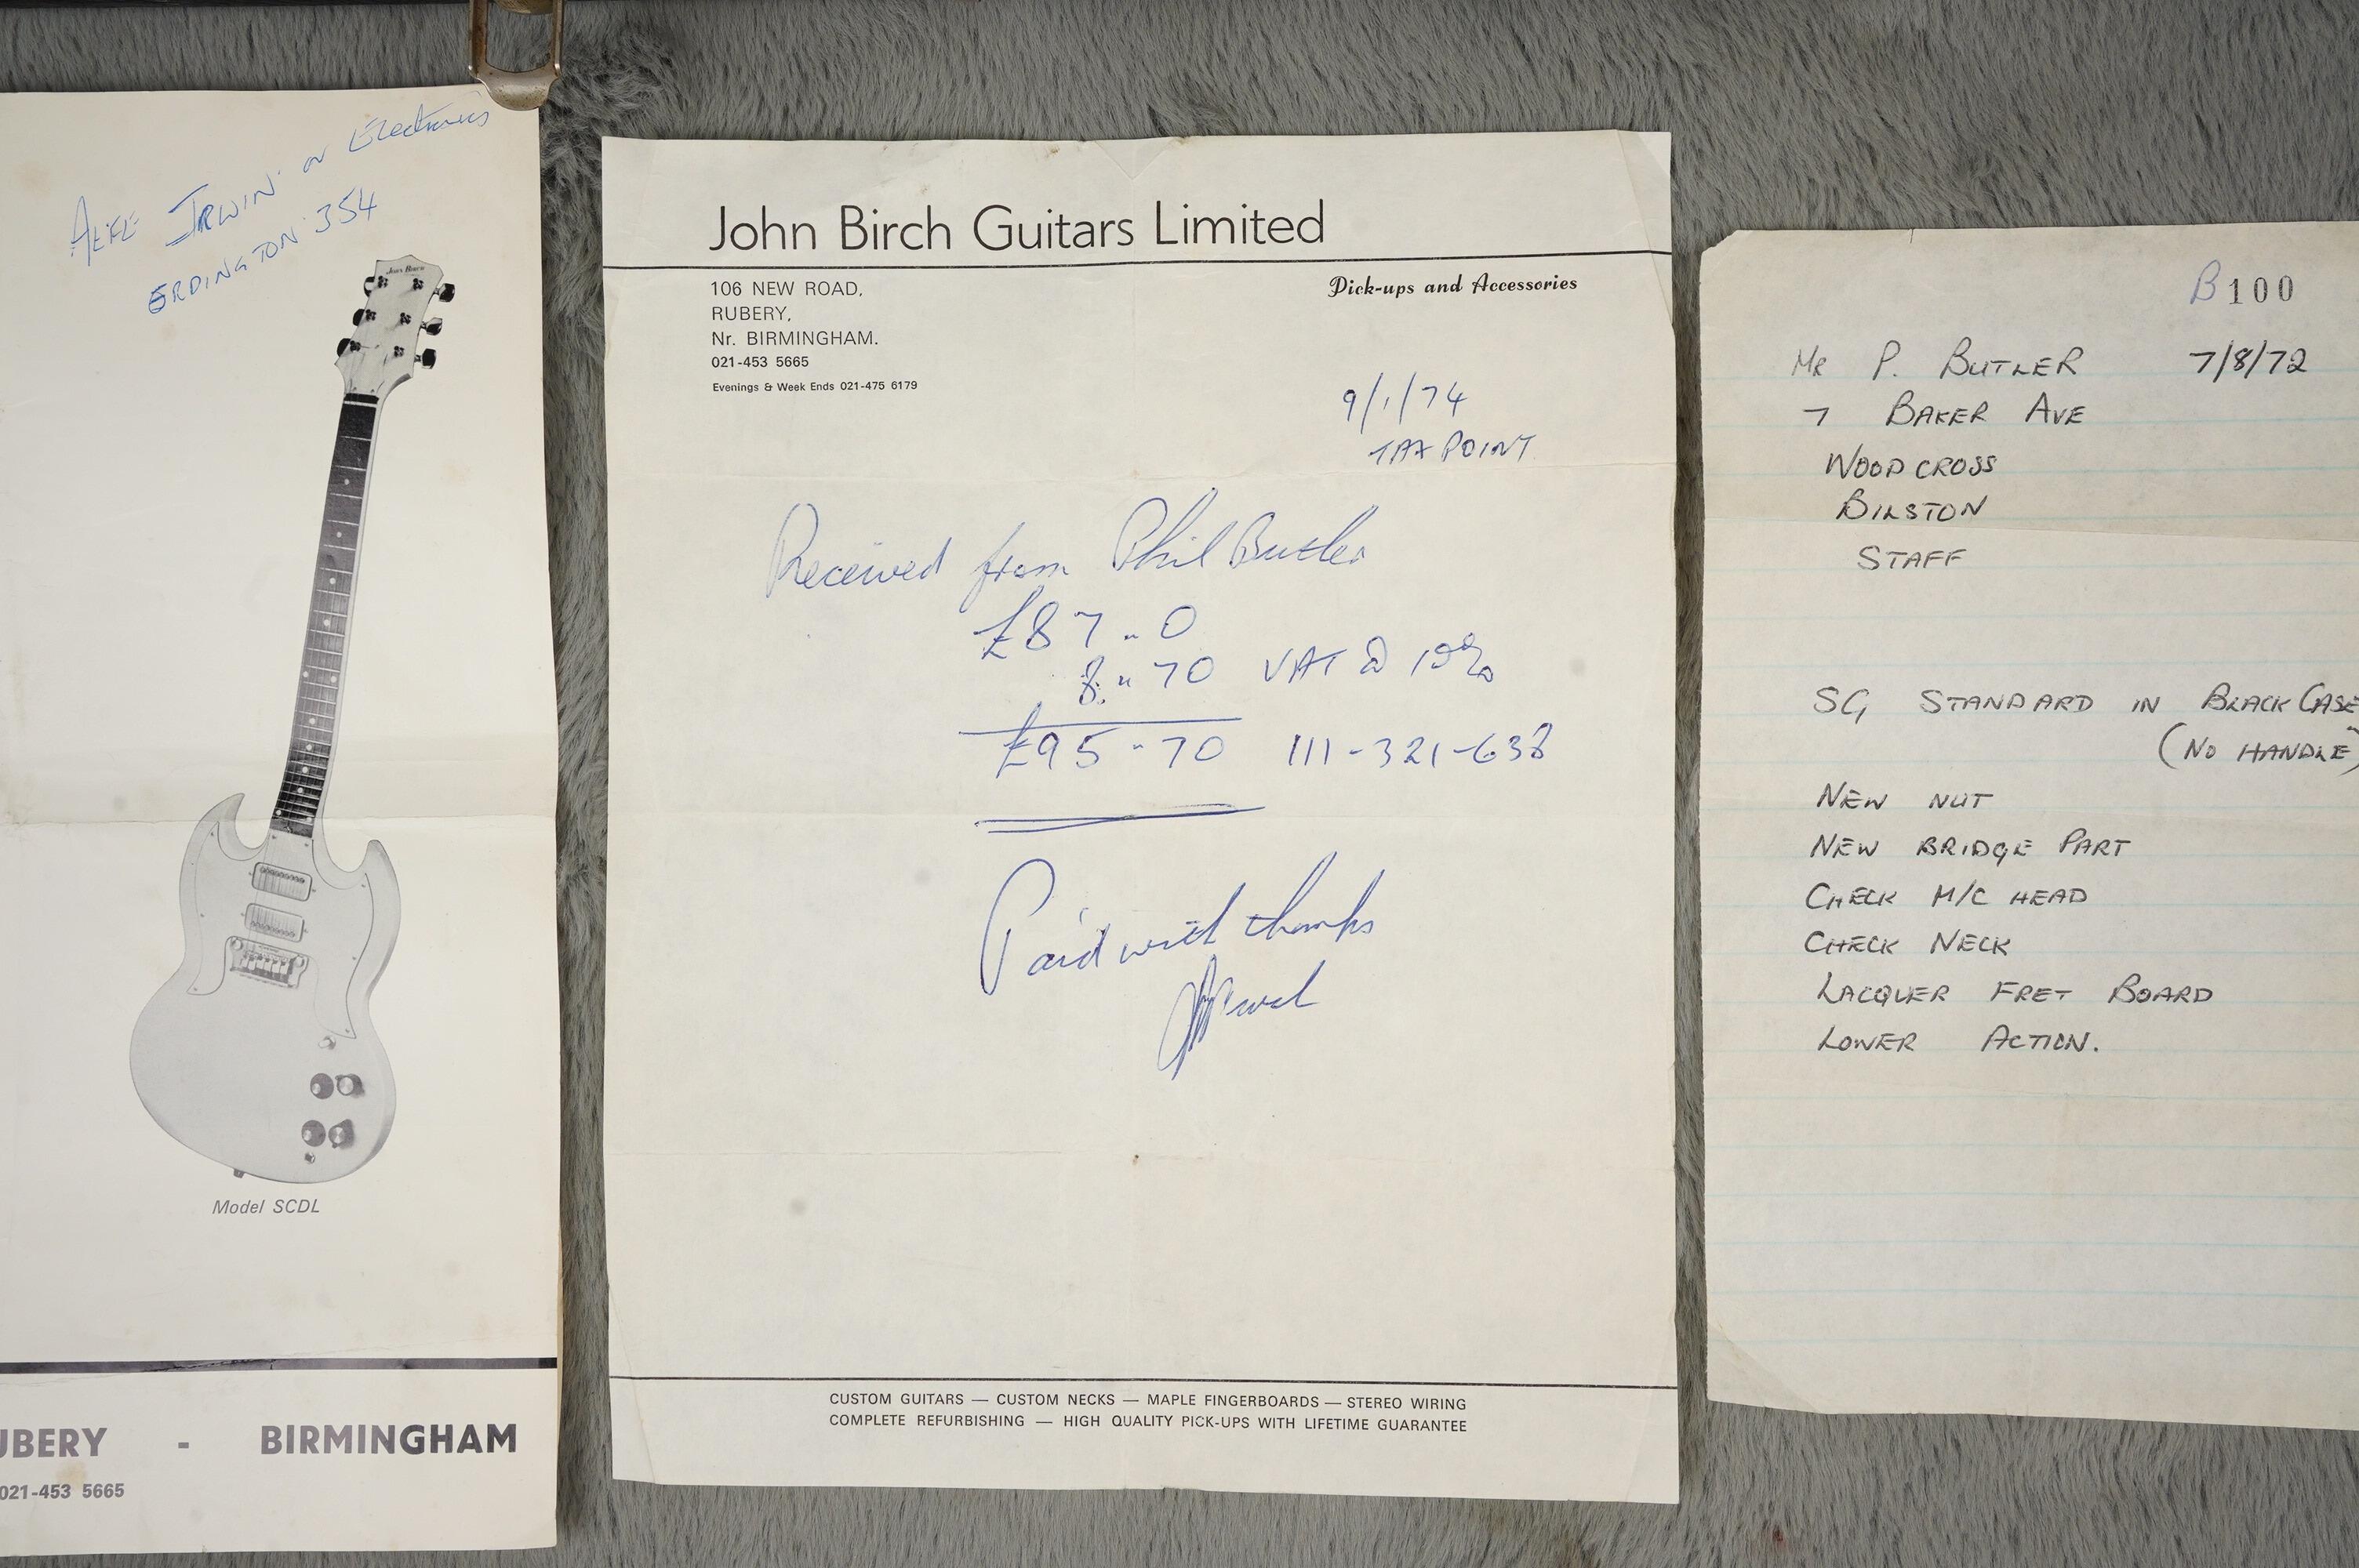 ALFE IRWIN on Electronics
ERDINGTON 354
John Birch
Model SCDL
UBERY - BIRMINGHAM
021-453 5665
John Birch Guitars Limited
106 NEW ROAD,
RUBERY,
Nr. BIRMINGHAM.
021-453 5665
Evenings & Week Ends 021-475 6179
Pick-ups and Accessories
9/1/74
TAX POINT
Received from Phil Butler
£87-0
8-70 VAT @ 10%
£95-70 111-321-638
Paid with thanks
CUSTOM GUITARS — CUSTOM NECKS — MAPLE FINGERBOARDS — STEREO WIRING
COMPLETE REFURBISHING — HIGH QUALITY PICK-UPS WITH LIFETIME GUARANTEE
B100
MR P. BUTLER 7/8/72
7 BAKER AVE
WOODCROSS
BILSTON
STAFF
SG STANDARD IN BLACK CASE
(NO HANDLE)
NEW NUT
NEW BRIDGE PART
CHECK M/C HEAD
CHECK NECK
LACQUER FRET BOARD
LOWER ACTION.